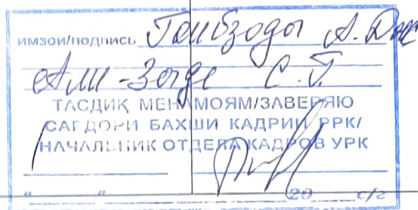 имзои/подпись Гоибзоды А. Дж
Али-Зоде С. Г.
ТАСДИҚ МЕНАМОЯМ/ЗАВЕРЯЮ
САРДОРИ БАХШИ КАДРИИ РРК/
НАЧАЛЬНИК ОТДЕЛА КАДРОВ УРК
" " 20 с/г